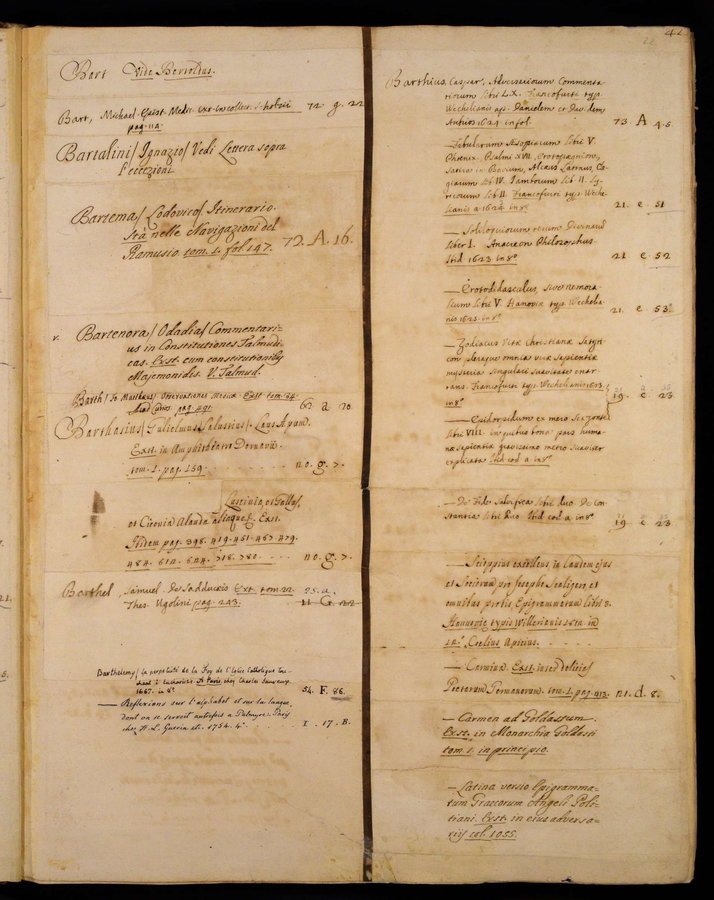 42
Bart Vide Bertolius.
Bart, Michael. 72 g. 22
pag. 114.
Bartalini/ Ignazio/ Vedi Lettera sopra
l'eccezioni
Bartema/ Lodovico/ Itinerario.
Sta nelle Navigazioni del
Ramusio tom. 1. fol. 147. 72. A. 16.
v. Bartenora/ Odadia/ Commentari-
us in Constitutiones Talmudi
cas. Exst. cum constitutionibus
Majemonidis. V. Talmud.
Barth/ Jo Matthæus/ Observationes Exst. tom. 34.
pag. 491. a 20.
Barthasius/ Gulielmus Salustius/ Laus Apum.
Exst. in Amphitheatro Dornavii.
tom. 1. pag. 159. no. g. 7.
Luscinia, et Gallus,
et Ciconia Alauda aliaque. Exst.
Ibidem pag. 398. 419. 461. 467. 479.
484. 512. 524. 718. 780. no. g. 7.
Barthel, Samuel. De Sadducæis Ext. tom. 22. 25. a.
Thes. Ugolini pag. 243. 11 G 22
Barthelemy/ la perpetuité de la Foy de l'Eglise Catholique tou-
chant l'Eucharistie. A Paris, chez Charles Savreux.
1667. in 8° 54. F. 86.
— Reflexions sur l'alphabet et sur la langue,
dont on se servoit autrefois a Palmyre. Paris
chez H. L. Guerin etc. 1754. 4° I. 17. B.
Barthius, Caspar, Adversariorum Commenta-
riorum libri LX. Francofurti typ.
Wechelianis ap. Danielem et Davidem
Aubrios 1624 in fol. 73 A 4.5.
— Fabularum Æsopiacum libri V.
Phœnix. Psalmi XVII. Erotopægnion,
Satira in Bavium, Alcæus Latinus, Ele-
giarum lib. IV. Iamborum lib II. Ly-
ricorum lib II. Francofurti typ. Weche-
lianis a. 1624 in 8° 21. e. 51
— Soliloquiorum rerum Divinarum
liber I. Anacreon Philosophus.
Ibid 1623 in 8° 21 e. 52
— Erotodidascalus, sive nemora-
lium libri V. Hanoviæ typ. Wechelia-
nis 1625. in 8° 21. e 53
— Zodiacus Vitæ Christianæ Satyri-
con pleraque omnia veræ sapientiæ
mysteria singulari suavitate enar-
rans. Francofurti typ. Wechelianis 1623.
in 8° 19. e. 23
— Epidorpidum ex mero Scazonte
libri VIII. in quibus bona pars huma-
næ sapientiæ gravissimo metro suaviter
explicata Ibid eod a in 8°
— De Fide Salvifica libri duo. De Con-
stantia libri Duo. Ibid eod a in 8° 19 e 23
— Scioppius excellens, in laudem ejus
et Sociorum pro Josepho Scaligero, et
omnibus probis Epigrammatum libri 3.
Hanoviæ typis Willerianis 1612 in
12° Cœlius Apicius.
— Carmina. Exst. inter delicias
Poetarum Germanorum. tom. 1. pag. 413. n1. d. 8.
— Carmen ad Goldastum
Exst. in Monarchia Goldasti
tom. 1. in principio.
— Latina versio Epigramma-
tum Græcorum Angeli Poli-
tiani. Exst. in eius adversa-
riis col. 1055.